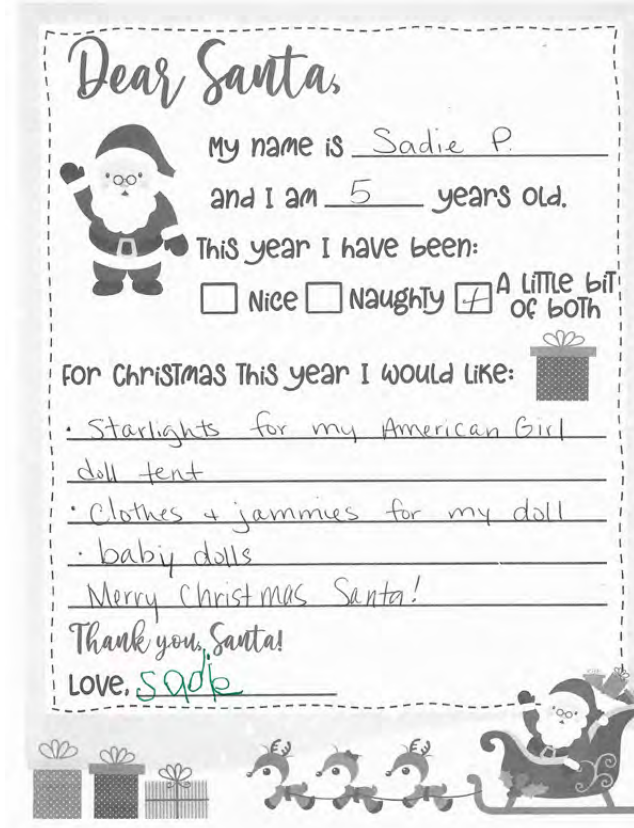 Dear Santa,
My name is Sadie P.
and I am 5 years old.
This year I have been:
Nice Naughty A little bit
of both
For Christmas this year I would like:
· Starlights for my American Girl
doll tent
· Clothes + jammies for my doll
· baby dolls
Merry Christmas Santa!
Thank you, Santa!
Love, Sadie